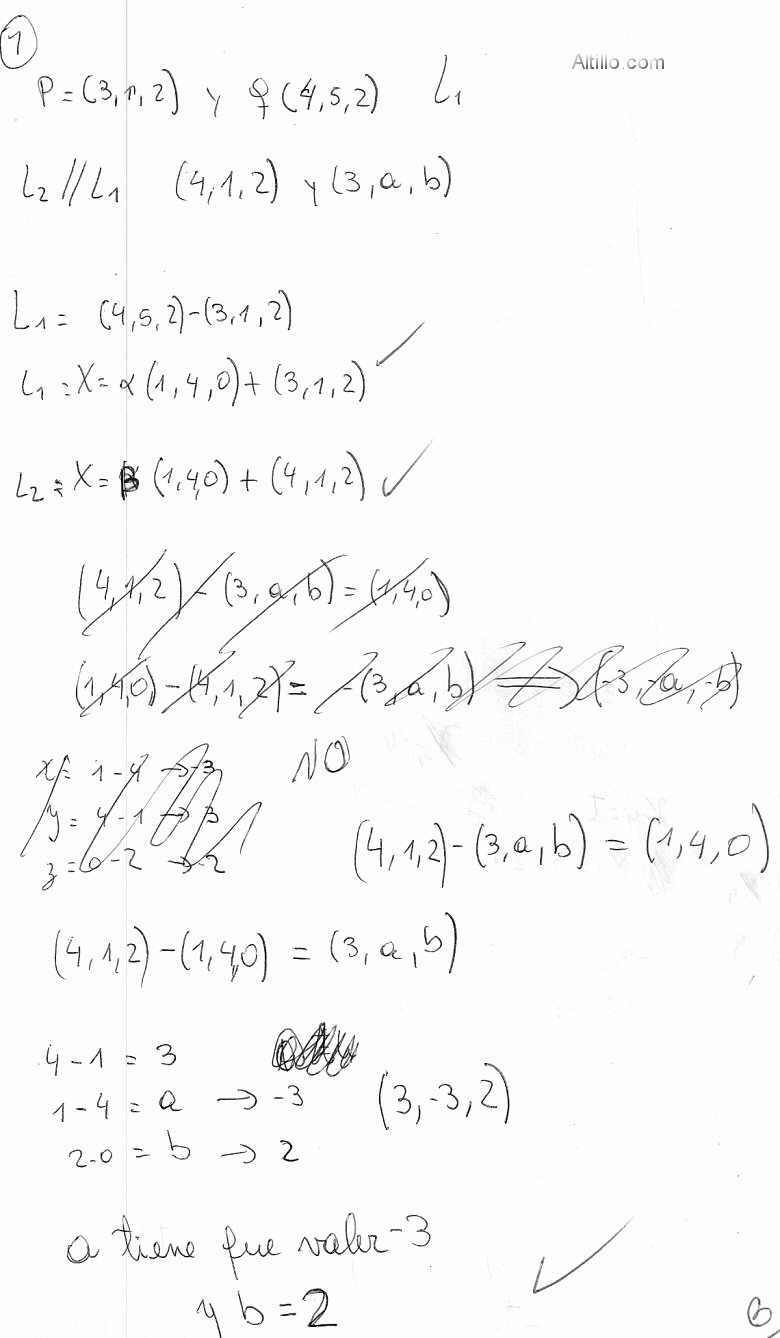 1
Altillo.com
P = (3,1,2) y Q (4,5,2) L1
L2 // L1 (4,1,2) y (3, a, b)
L1 = (4,5,2)-(3,1,2)
L1 : X = α (1,4,0) + (3,1,2)
L2 : X = β (1,4,0) + (4,1,2)
(4,1,2) - (3, a, b) = (1,4,0)
(1,4,0) - (4,1,2) = -(3, a, b) ⇒ (-3, -a, -b)
x = 1-4 → -3 NO
y = 4-1 → 3
z = 0-2 → -2
(4,1,2) - (3, a, b) = (1,4,0)
(4,1,2) - (1,4,0) = (3, a, b)
4-1 = 3
1-4 = a → -3 (3,-3,2)
2-0 = b → 2
a tiene que valer -3
y b = 2